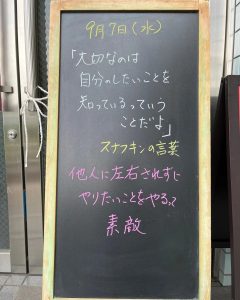 9月7日(水)
「大切なのは
自分のしたいことを
知っているっていう
ことだよ」
スナフキンの言葉
他人に左右されずに
やりたいことをやるって
素敵